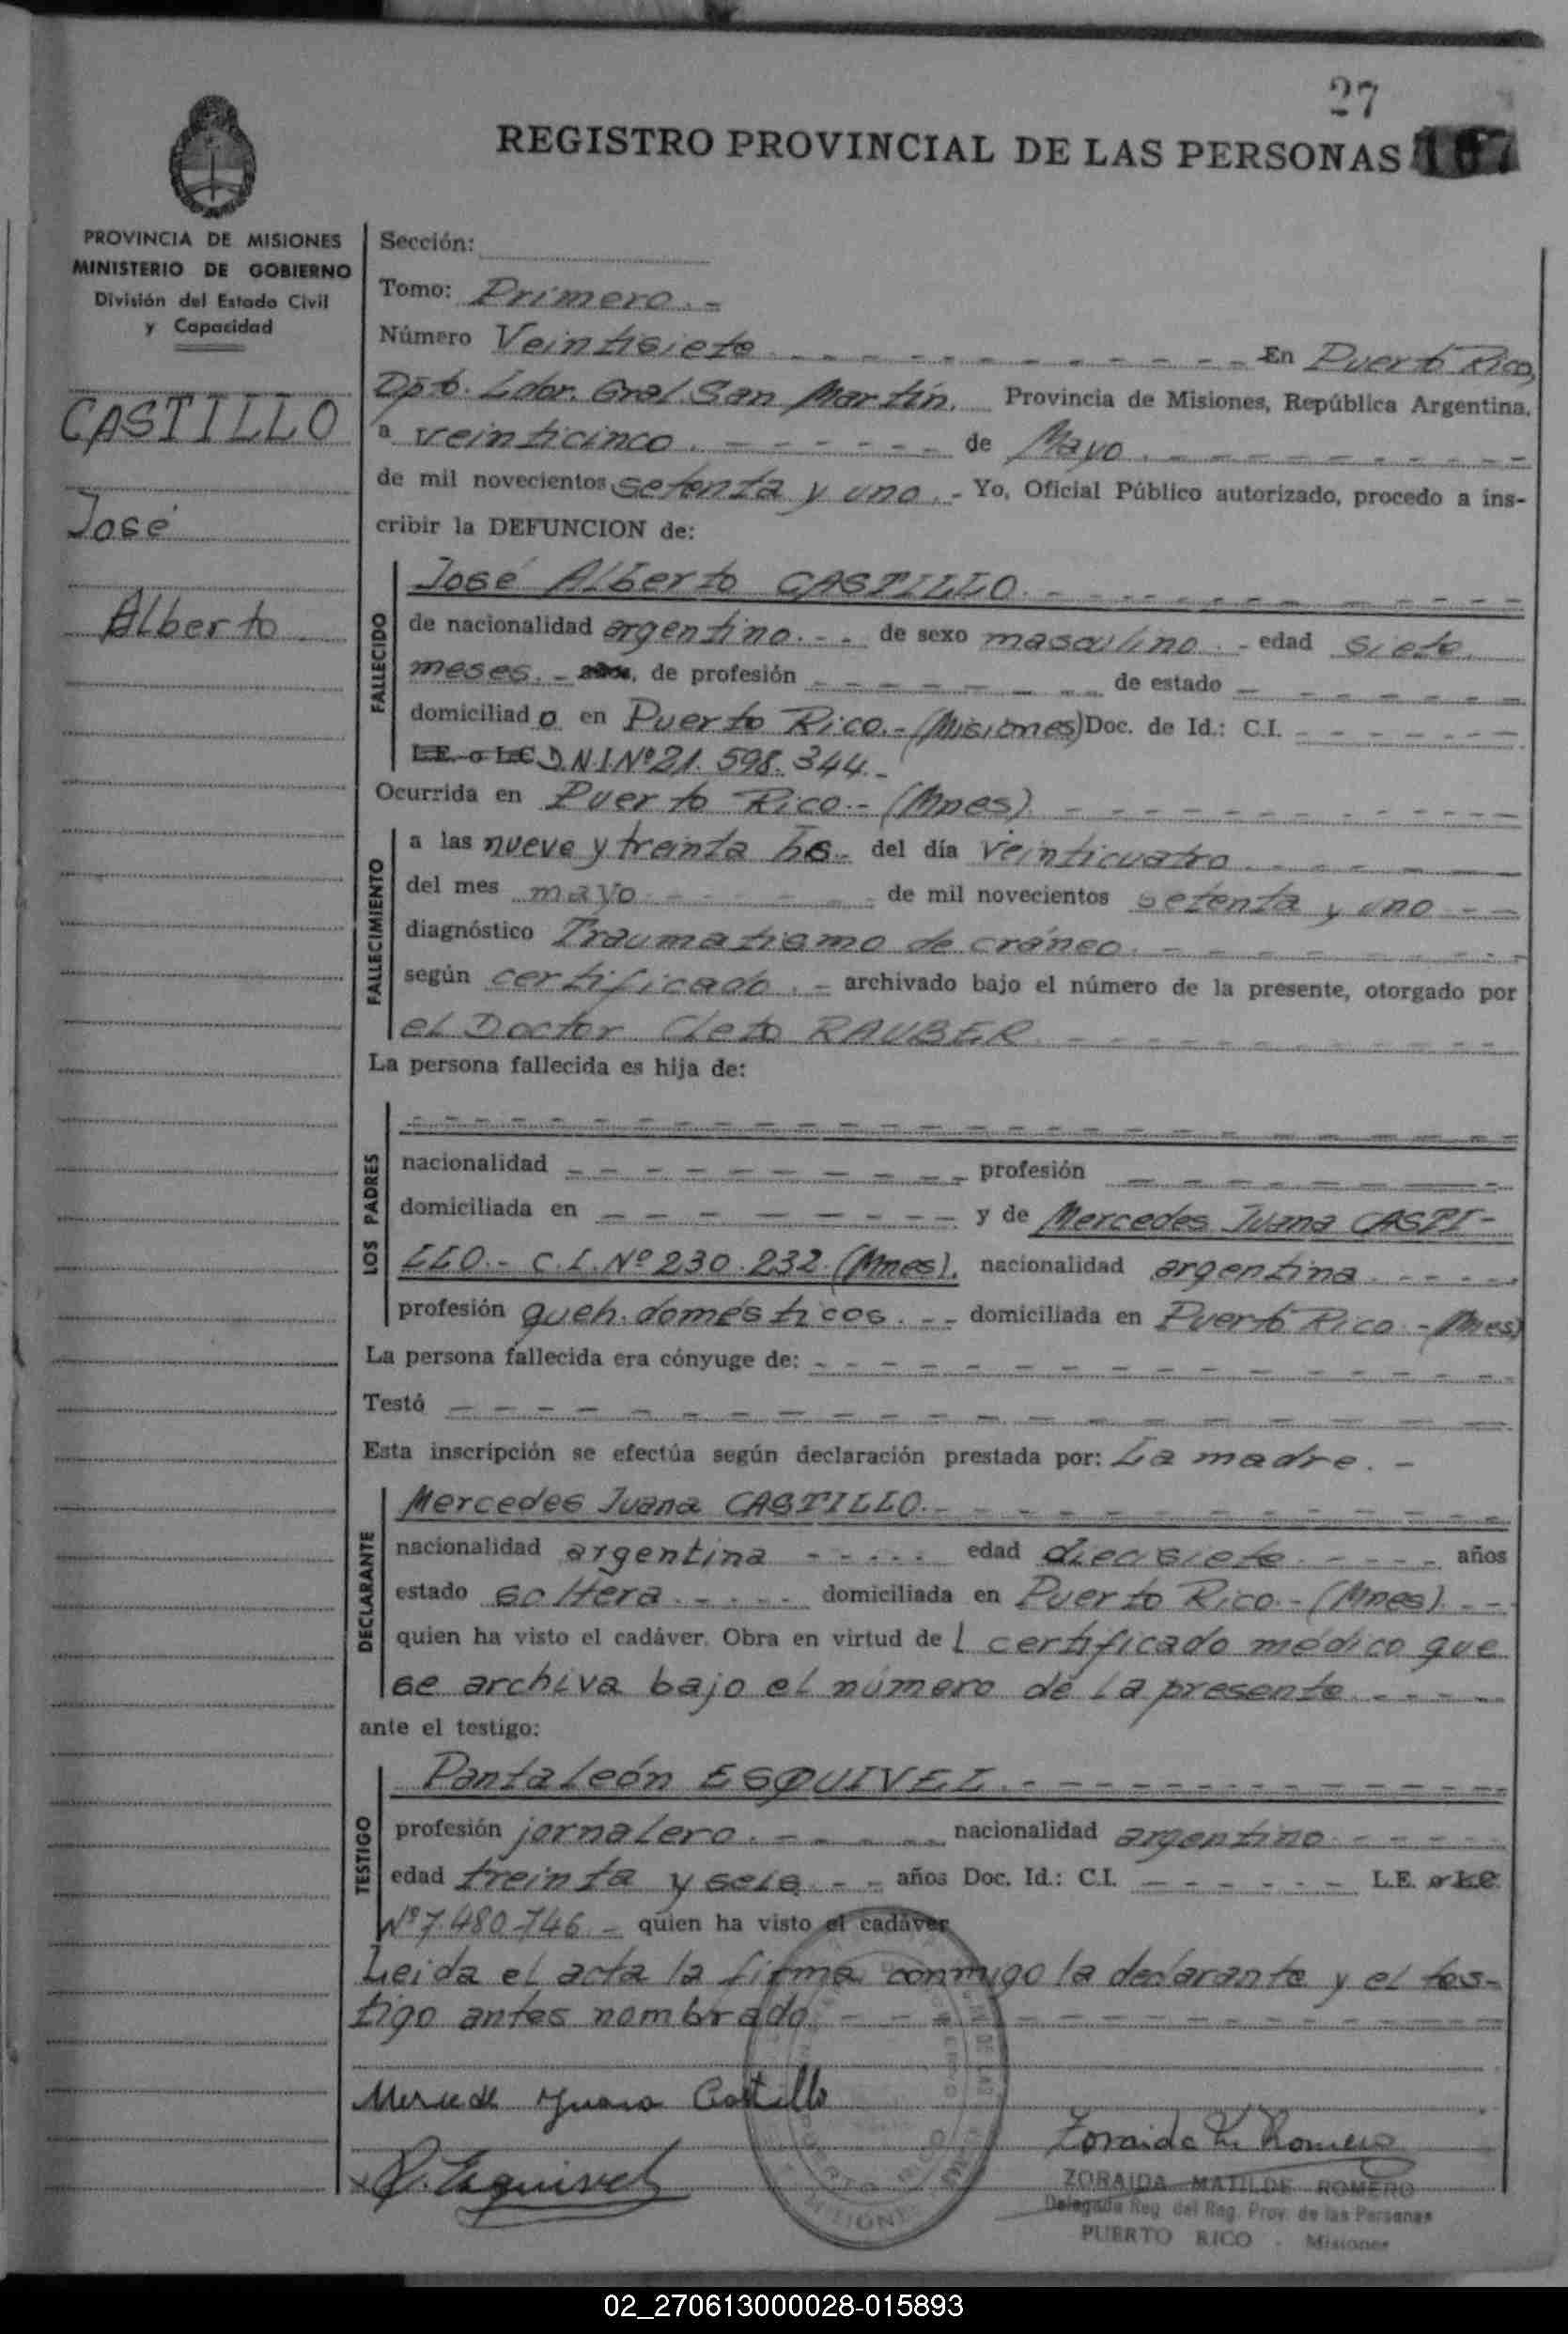 27
REGISTRO PROVINCIAL DE LAS PERSONAS 167
PROVINCIA DE MISIONES
MINISTERIO DE GOBIERNO
División del Estado Civil
y Capacidad
CASTILLO
José
Alberto
Sección:
Tomo: Primero.-
Número Veintisiete - - - - En Puerto Rico,
Dpto. Ldor. Gral. San Martín. Provincia de Misiones, República Argentina,
a veinticinco. - - - - de Mayo. - - - -
de mil novecientos setenta y uno.- Yo, Oficial Público autorizado, procedo a ins-
cribir la DEFUNCION de:
FALLECIDO
José Alberto CASTILLO. - - - -
de nacionalidad argentino. - - de sexo masculino. - edad siete
meses. - años, de profesión - - - - de estado - - - -
domiciliado en Puerto Rico.- (Misiones) Doc. de Id.: C.I. - - - -
L.E. o L.C. D.N.I Nº 21.598.344.-
Ocurrida en Puerto Rico.- (Mnes). - - - -
FALLECIMIENTO
a las nueve y treinta hs.- del día veinticuatro - - - -
del mes mayo - - - - de mil novecientos setenta y uno - -
diagnóstico Traumatismo de cráneo. - - - -
según certificado. - archivado bajo el número de la presente, otorgado por
el Doctor Cleto RAUBER. - - - -
La persona fallecida es hija de:
LOS PADRES
- - - -
nacionalidad - - - - profesión - - - -
domiciliada en - - - - y de Mercedes Juana CASTI-
LLO.- C.I. Nº 230.232. (Mnes). nacionalidad argentina. - - - -
profesión queh. domésticos. - - domiciliada en Puerto Rico - (Mnes)
La persona fallecida era cónyuge de: - - - -
Testó - - - -
Esta inscripción se efectúa según declaración prestada por: La madre. -
DECLARANTE
Mercedes Juana CASTILLO.- - - - -
nacionalidad argentina - - - - edad diecisiete. - - - - años
estado soltera. - - - - domiciliada en Puerto Rico.- (Mnes). - -
quien ha visto el cadáver. Obra en virtud del certificado médico que
se archiva bajo el número de la presente. - - - -
ante el testigo:
TESTIGO
Pantaleón ESQUIVEL. - - - -
profesión jornalero. - - - - nacionalidad argentino - - - -
edad treinta y seis. - - años Doc. Id.: C.I. - - - - L.E. o L.C.
Nº 7.480.746. - quien ha visto el cadáver
Leida el acta la firma conmigo la declarante y el tes-
tigo antes nombrado. - - - -
Mercede Juana Castillo
P. Esquivel
PUERTO RICO
MISIONES
Zoraida M. Romero
ZORAIDA MATILDE ROMERO
Delegada Reg. del Reg. Prov. de las Personas
PUERTO RICO - Misiones
02_270613000028-015893